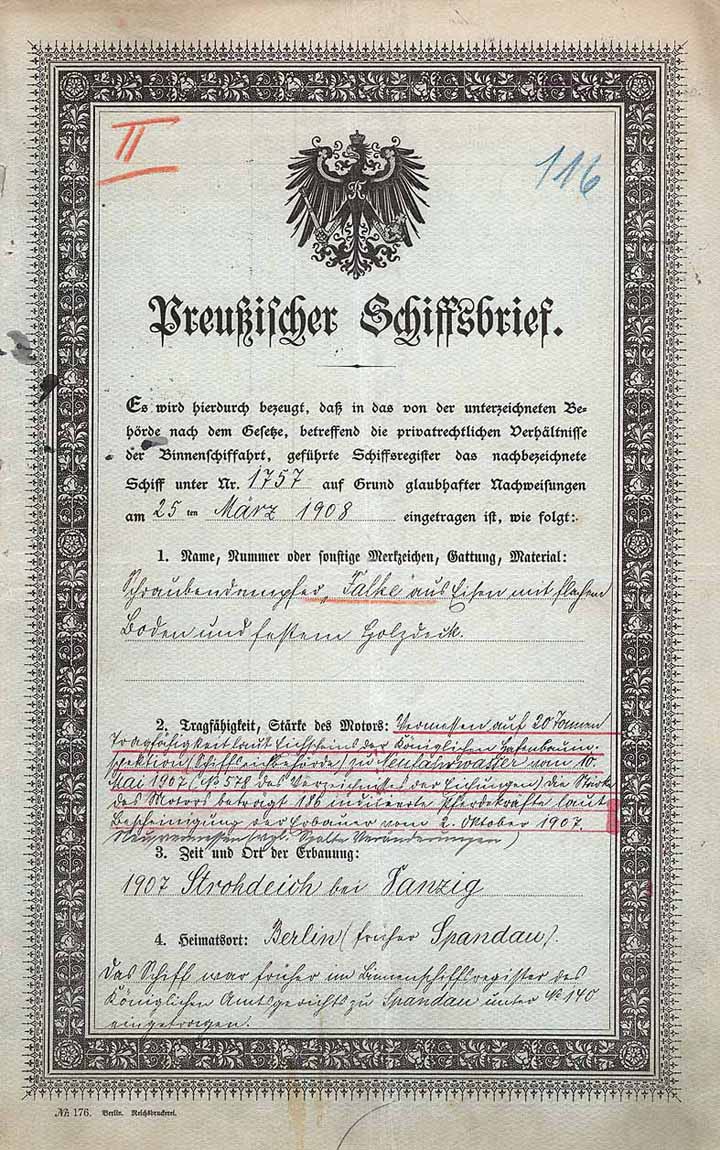 II
116
Preußischer Schiffsbrief.
Es wird hierdurch bezeugt, daß in das von der unterzeichneten Be-
hörde nach dem Gesetze, betreffend die privatrechtlichen Verhältnisse
der Binnenschiffahrt, geführte Schiffsregister das nachbezeichnete
Schiff unter Nr. 1757 auf Grund glaubhafter Nachweisungen
am 25 ten März 1908 eingetragen ist, wie folgt:
1. Name, Nummer oder sonstige Merkzeichen, Gattung, Material:
Schraubendampfer „Falke“ aus Eisen mit flachem
Boden und festem Holzdeck.
2. Tragfähigkeit, Stärke des Motors: Vermessen auf 20 Tonnen
Tragfähigkeit laut Eichscheins der Königlichen Hafenbauin-
spektion (Schiffseichbehörde) zu Neufahrwasser vom 10.
Mai 1907 (№ 578 des Verzeichnisses der Eichungen) die Stärke
des Motors beträgt 186 indizierte Pferdekräfte laut
Bescheinigung der Erbauer vom 2. Oktober 1907.
Neuvermessen (vgl. Spalte Veränderungen)
3. Zeit und Ort der Erbauung:
1907 Strohdeich bei Danzig
4. Heimatsort: Berlin (früher Spandau).
Das Schiff war früher im Binnenschiffsregister des
Königlichen Amtsgerichts zu Spandau unter № 140
eingetragen.
№ 176. Berlin. Reichsdruckerei.